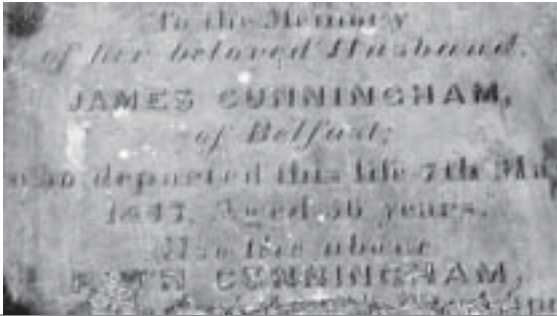 To the Memory
of her beloved Husband,
JAMES CUNNINGHAM,
of Belfast;
who departed this life 7th
1847, Aged 56 years.
Also the above
CUNNINGHAM,